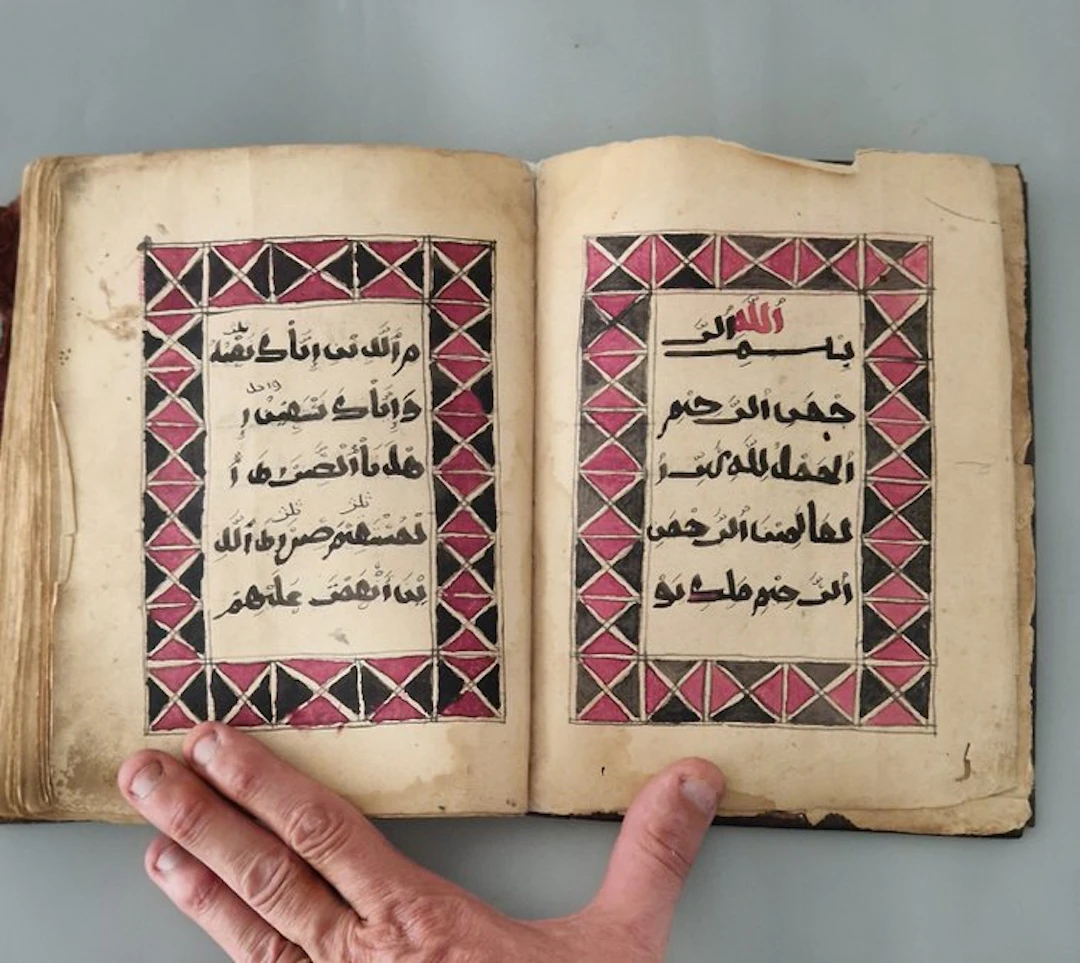 بِسْمِ اللَّهِ الرَّ
حْمَنِ الرَّحِيْمِ
اَلْحَمْدُ لِلَّهِ رَبِّ اَ
لْعَالَمِيْنَ الرَّحْمَنِ
الرَّحِيْمِ مَلِكِ يَوْ
مِ الدِّيْنِ إِيَّاكَ نَعْبُدُ
وَإِيَّاكَ نَسْتَعِيْنُ اِ
هْدِنَا الصِّرَاطَ اَ
لْمُسْتَقِيْمَ صِرَاطَ الَّذِ
يْنَ أَنْعَمْتَ عَلَيْهِمْ